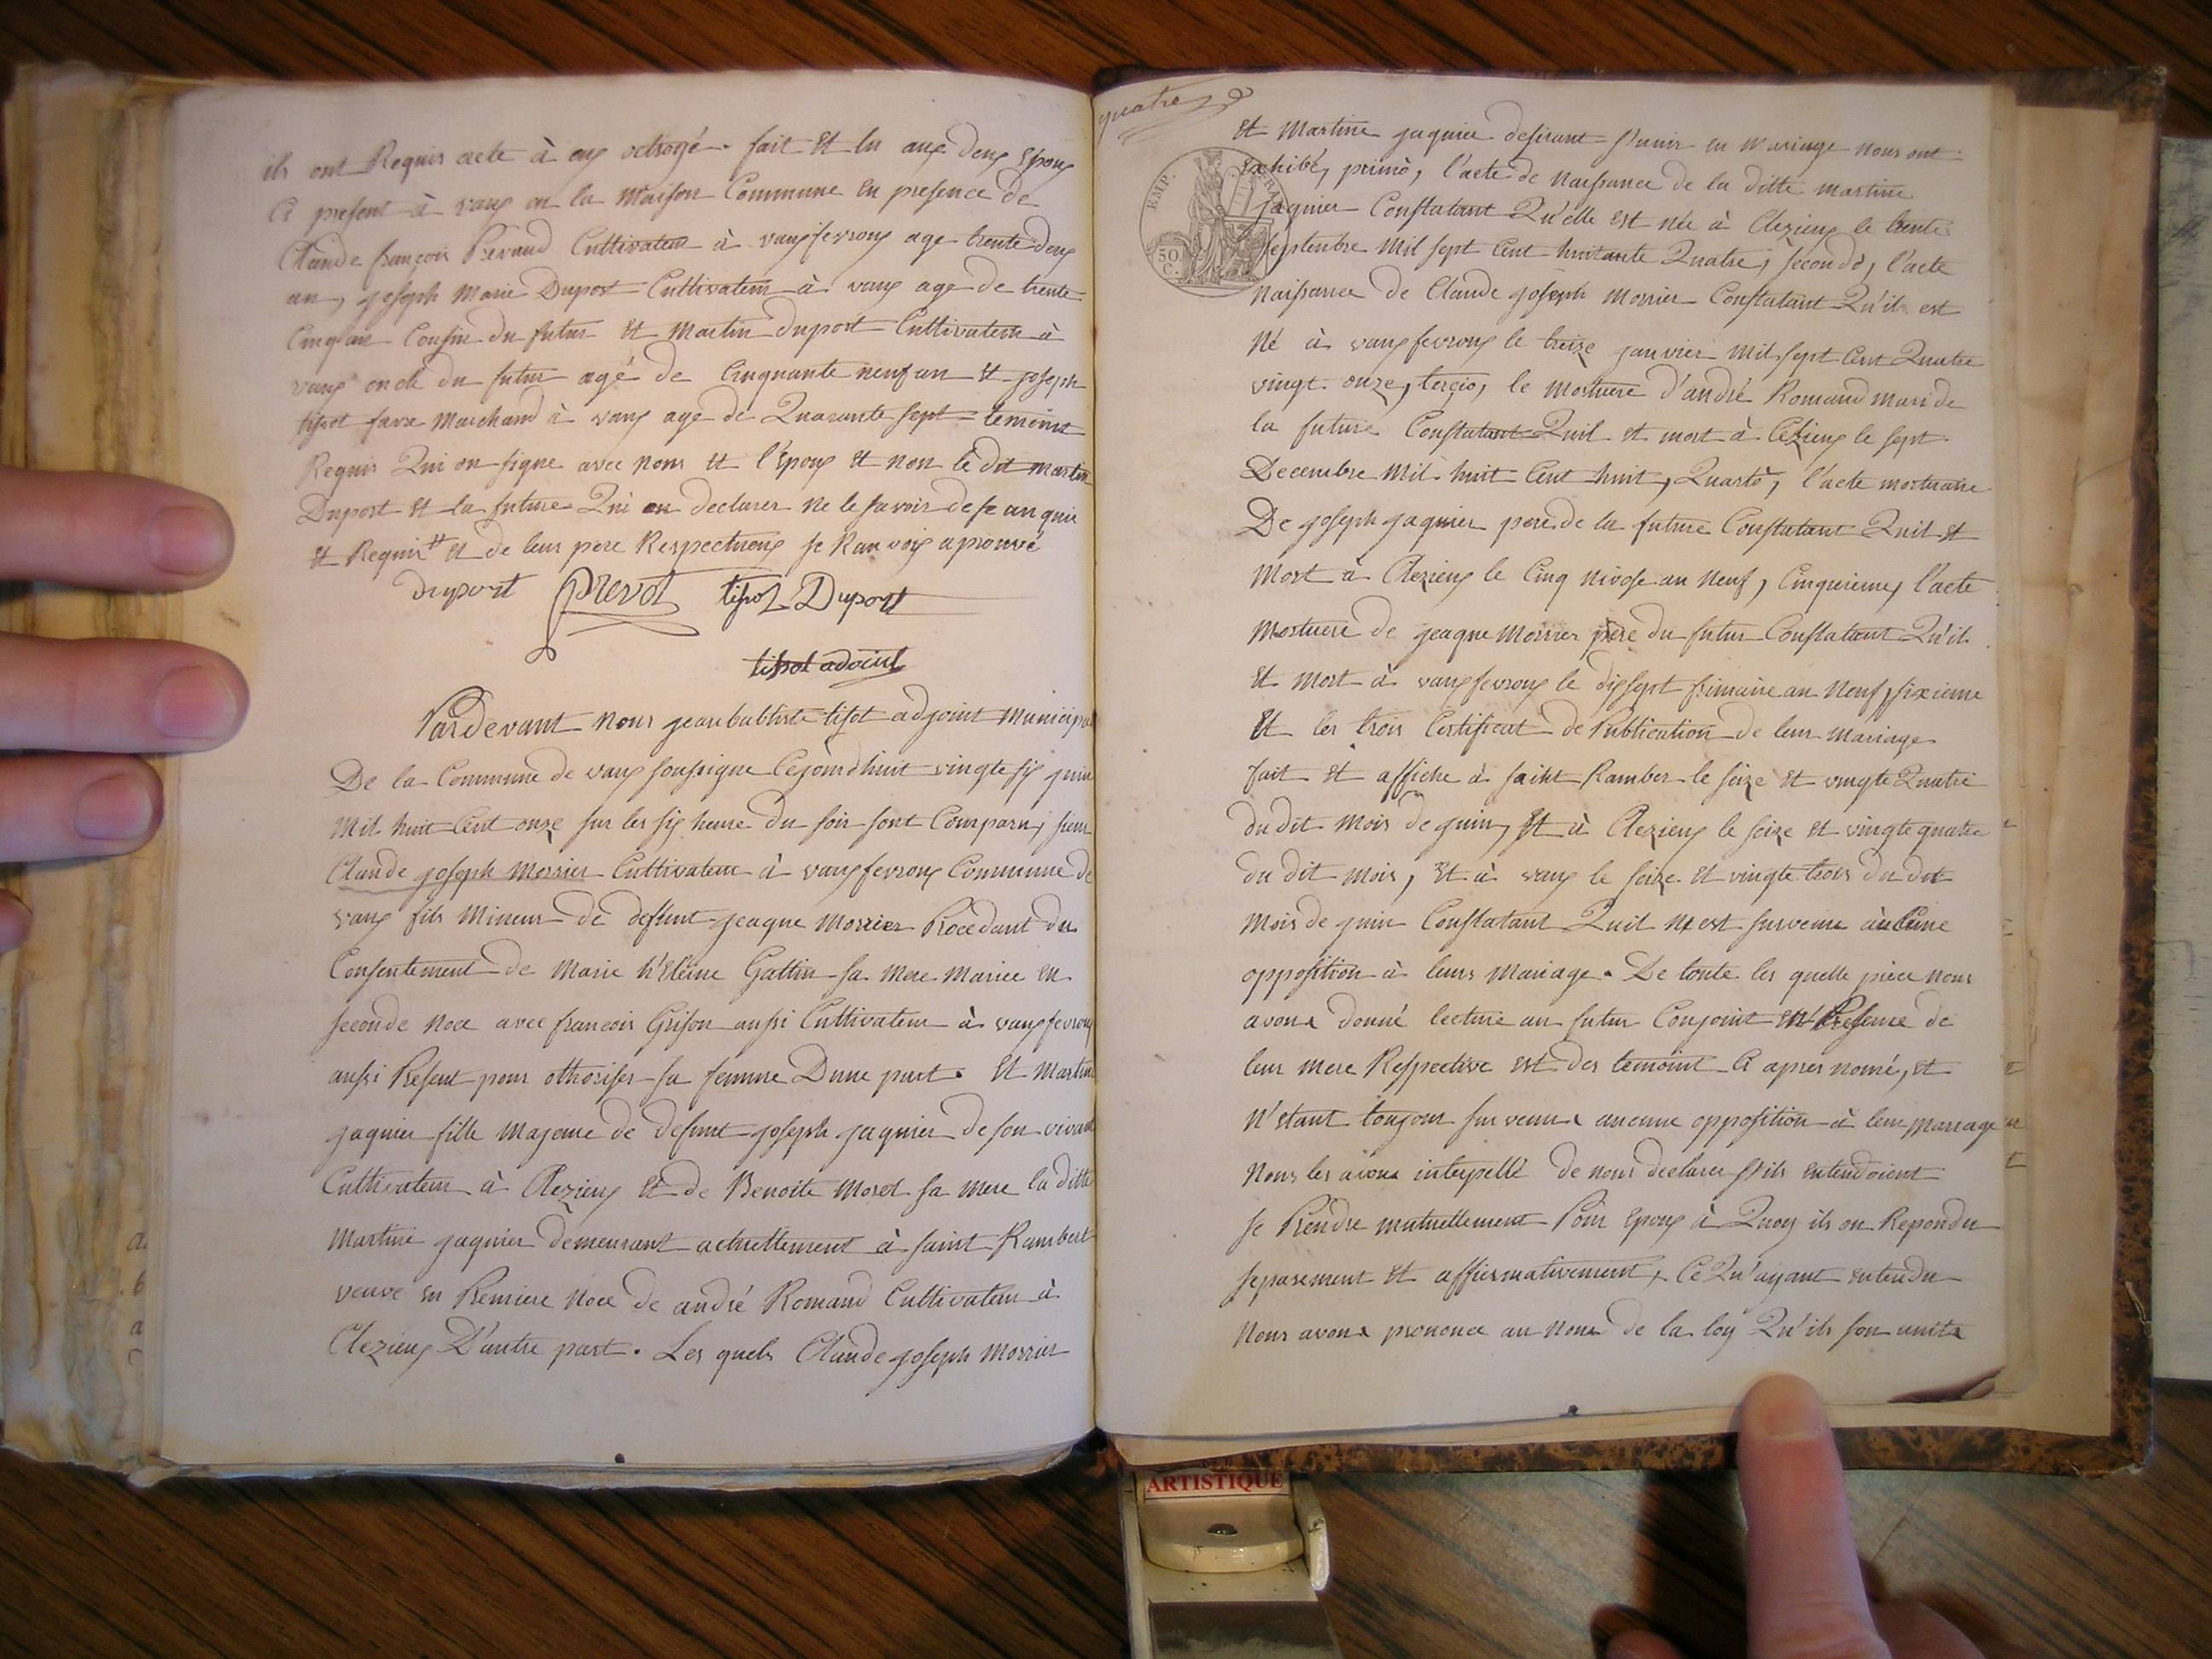 ils ont Requis acte à eux octroyé. fait Et lu aux deux Epoux
Ci present à vaux en la Maison Commune En presence de
Claude françois Prevaud Cultivateur à vauxfevroux age trente deux
an, joseph Marie Duport Cultivateur à vaux age de trente
Cinq an Cousin du futur Et Martin duport Cultivateur à
vaux oncle du futur agé de Cinquante neuf an Et joseph
tisot favre Marchand à vaux age de Quarante sept temoins
Requis Qui on signe avec nous Et l'Epoux Et non le dit martin
Duport Et la future Qui on declarer ne le savoir de ce anquis
Et Requis Et de leur pere Respectueux
duport Prevot tisot Duport
tisot adoint
Pardevant Nous jeanbabtiste tisot adjoint Municipal
De la Commune de vaux soussigne Cejourdhuit vingte six juin
Mil huit Cent onze sur les six heure du soir sont Comparu, sieur
Claude joseph Morrier Cultivateur à vauxfevroux Commune de
vaux fils Mineur de deffunt jeaque Morrier Procedant du
Consentement de Marie h'Eleine Gattin sa Mere Mariee en
seconde Noce avec francois Grison aussi Cultivateur à vauxfevroux
aussi Present pour othoriser sa femme Dune part. Et Martine
jaquier fille Majeure de defunt joseph jaquier de son vivant
Cultivateur à Clezieux Et de Benoite Morel sa mere la ditte
Martine jaquier demeurant actuellement à saint Rambert
veuve En Premiere Noce de andré Romand Cultivateur à
Clezieux D'autre part. Les quels Claude joseph Morrier
quatre
Et Martine jaquier desirant s'unir en Mariage nous ont
Exhibé, primò, l'acte de naissance de la ditte martine
jaquier Constatant Qu'elle est née à Clezieux le trente
septembre Mil sept Cent huitante Quatre, secondò, l'acte
Naissance de Claude joseph Morrier Constatant Qu'il est
Né à vauxfevroux le treize janvier Mil sept Cent Quatre
vingt onze, tercio, le Mortuere d'andré Romand mari de
la future Constatant Quil Et mort à Clezieux le sept
Decembre Mil huit Cent huit, Quartò, l'acte mortuaire
De joseph jaquier pere de la future Constatant Quil Et
Mort à Clezieux le Cinq nivose an Neuf, Cinquieme, l'acte
Mortuere de jeaque Morrier père du futur Constatant Qu'il
Et Mort à vauxfevroux le dix sept frimaire an Neuf, sixieme
Et les trois Certificat de Publication de leur Mariage
fait Et affiche à saint Ramber le seize Et vingte Quatre
du dit Mois de juin, Et à Clezieux le seize Et vingte quatre
du dit mois, Et à vaux le seize Et vingte trois du dit
Mois de juin Constatant Quil N'est survenu auCune
opposition à leurs Mariage. De toute les quelle piece Nous
avons donné lecture au futur Conjoint EN Presence de
leur Mere Respective est des temoint Ci apres nomé, Et
N'étant toujour survenu aucune opposition à leur Mariage
Nous les avons interpellé de nous declarer s'ils Entendoient
se Prendre mutuellement Pour Epoux à Quoy ils on Repondu
separement Et affirmativement, Ce Qu'ayant Entendu
Nous avons prononce au Nom de la loy Qu'ils son unita
EMP. FRA
50 C.
ARTISTIQUE